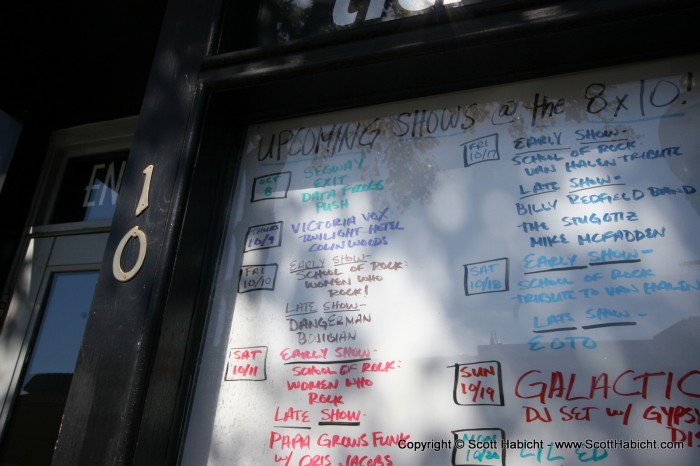 10
EN
UPCOMING SHOWS @ the 8x10!
OCT 8
SEGWAY
EXIT
DATA FROGS
PUSH
THURS 10/9
VICTORIA VOX
TWILIGHT HOTEL
COLIN WOODS
FRI 10/10
EARLY SHOW-
SCHOOL OF ROCK:
WOMEN WHO
ROCK!
LATE SHOW-
DANGERMAN
BOJIBIAN
SAT 10/11
EARLY SHOW-
SCHOOL OF ROCK:
WOMEN WHO
ROCK
LATE SHOW-
PAPA GROWS FUNK
W/ CRIS JACOBS
FRI 10/17
EARLY SHOW-
SCHOOL OF ROCK
VAN HALEN TRIBUTE
LATE SHOW-
BILLY REDFIELD BAND
THE STUGOTIZ
MIKE MCFADDEN
SAT 10/18
EARLY SHOW-
SCHOOL OF ROCK
TRIBUTE TO VAN HALEN
LATE SHOW-
EOTO
SUN 10/19
GALACTIC
DJ SET W/ GYPSY
MON 10/20
LIL ED
Copyright © Scott Habicht - www.ScottHabicht.com